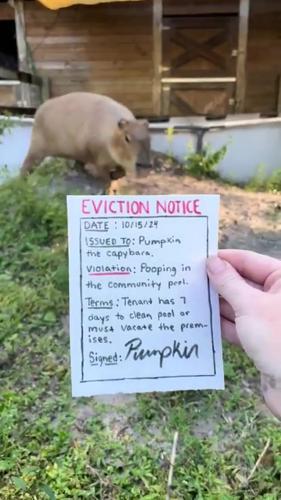 EVICTION NOTICE
DATE: 10/15/24
ISSUED TO: Pumpkin
the capybara.
Violation: Pooping in
the community pool.
Terms: Tenant has 7
days to clean pool or
must vacate the prem-
ises.
Signed: Pumpkin